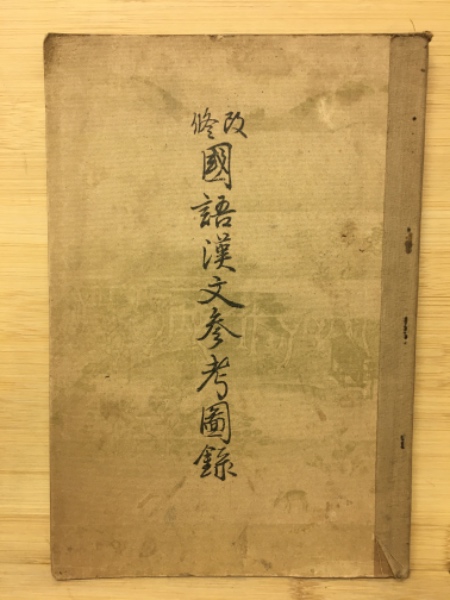 改修
國語漢文參考圖錄